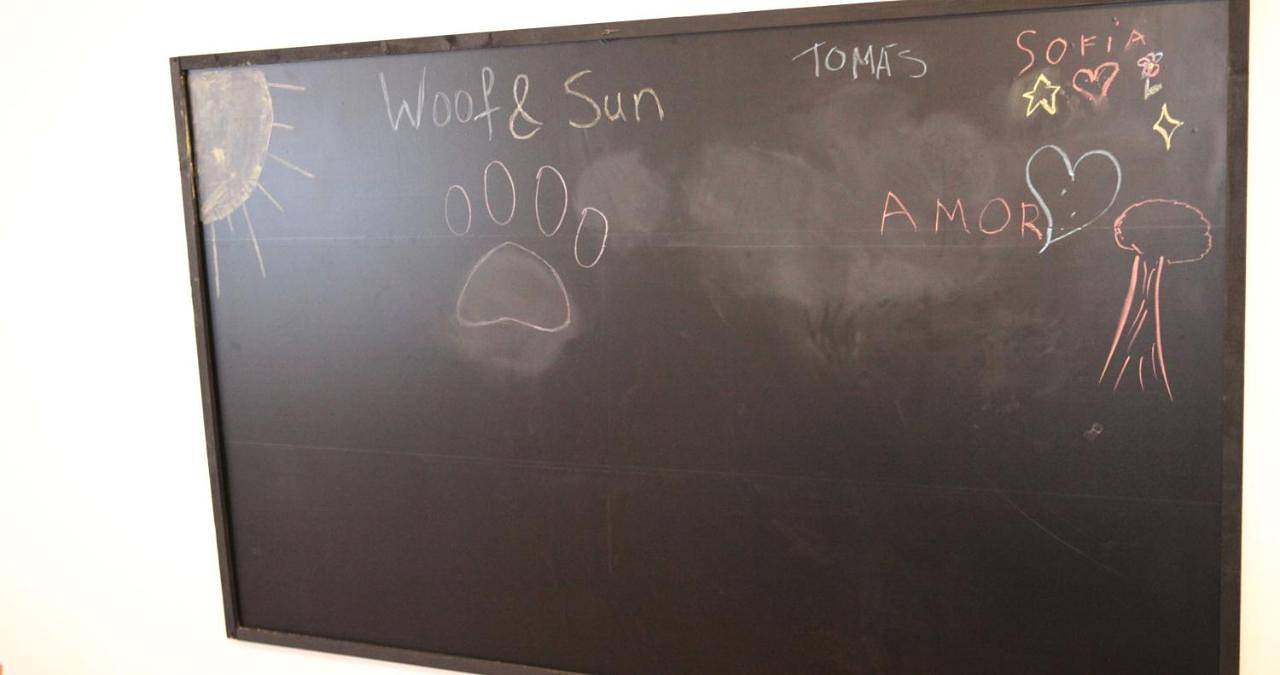 Woof & Sun
TOMÁS
SOFIA
AMOR